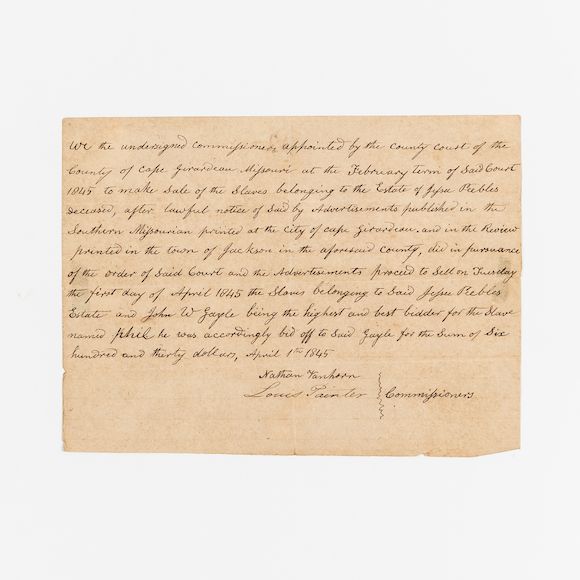 We the undersigned commissioners appointed by the county court of the
County of Cape Girardeau Missouri at the February term of Said Court
1845 to make Sale of the Slaves belonging to the Estate of Jesse Peebles
deceased, after lawful notice of Said by Advertisements published in the
Southern Missourian printed at the City of Cape Girardeau. and in the Review
printed in the town of Jackson in the aforesaid county, did in pursuance
of the order of Said Court and the Advertisements proceed to Sell on Tuesday
the first day of April 1845 the Slaves belonging to Said Jesse Peebles
Estate and John W Gayle being the highest and best bidder for the Slave
named Phil he was accordingly bid off to Said Gayle for the Sum of Six
hundred and thirty dollars, April 1st 1845
Nathan Vanhorn
Louis Painter } Commissioners